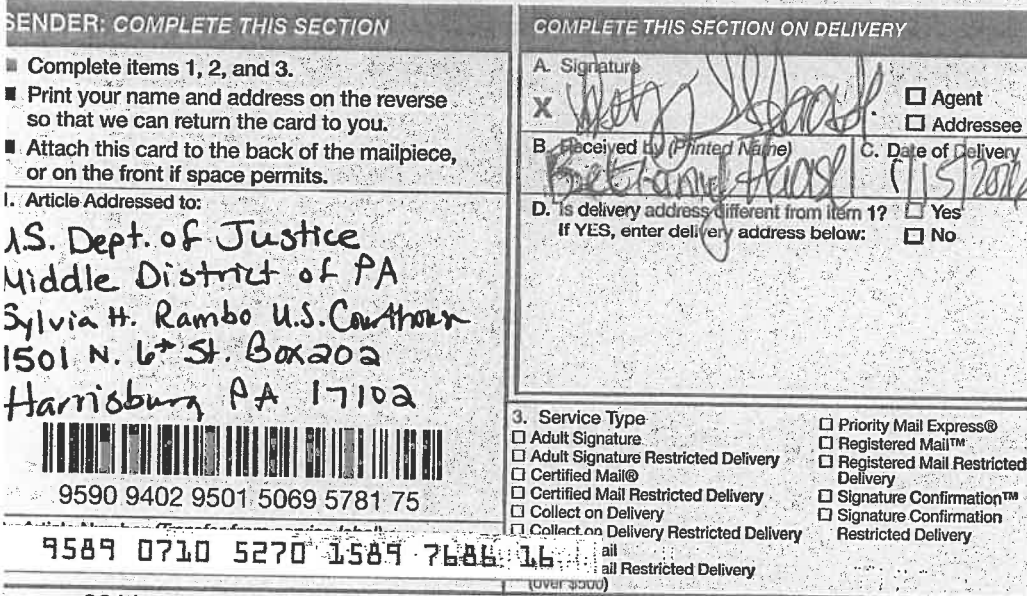 SENDER: COMPLETE THIS SECTION
■ Complete items 1, 2, and 3.
■ Print your name and address on the reverse
so that we can return the card to you.
■ Attach this card to the back of the mailpiece,
or on the front if space permits.
1. Article Addressed to:
U.S. Dept. of Justice
Middle District of PA
Sylvia H. Rambo U.S. Courthouse
1501 N. 6th St. Box 202
Harrisburg PA 17102
9590 9402 9501 5069 5781 75
Article Number (Transfer from service label)
9589 0710 5270 1589 7686 16
COMPLETE THIS SECTION ON DELIVERY
A. Signature
X
☐ Agent
☐ Addressee
B. Received by (Printed Name)
C. Date of Delivery
D. Is delivery address different from item 1? ☐ Yes
If YES, enter delivery address below: ☐ No
3. Service Type
☐ Adult Signature
☐ Adult Signature Restricted Delivery
☐ Certified Mail®
☐ Certified Mail Restricted Delivery
☐ Collect on Delivery
☐ Collect on Delivery Restricted Delivery
ail
ail Restricted Delivery
(over $500)
☐ Priority Mail Express®
☐ Registered Mail™
☐ Registered Mail Restricted
Delivery
☐ Signature Confirmation™
☐ Signature Confirmation
Restricted Delivery